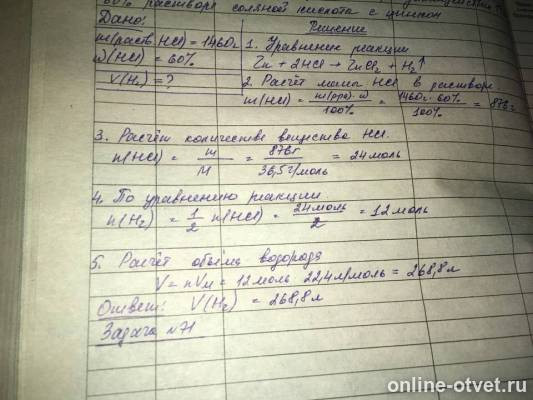 60% раствора соляной кислоты с цинком
Дано:
m(раств. HCl) = 1460г
ω(HCl) = 60%
V(H₂) = ?
Решение
1. Уравнение реакции
Zn + 2HCl → ZnCl₂ + H₂↑
2. Расчёт массы HCl в растворе
m(HCl) = m(р-ра)·ω / 100% = 1460г·60% / 100% = 876г
3. Расчёт количества вещества HCl.
n(HCl) = m / M = 876г / 36,5г/моль = 24 моль
4. По уравнению реакции
n(H₂) = 1/2 n(HCl) = 24 моль / 2 = 12 моль
5. Расчёт объёма водорода
V = nVм = 12 моль · 22,4 л/моль = 268,8 л
Ответ: V(H₂) = 268,8 л
Задача №71
online-otvet.ru